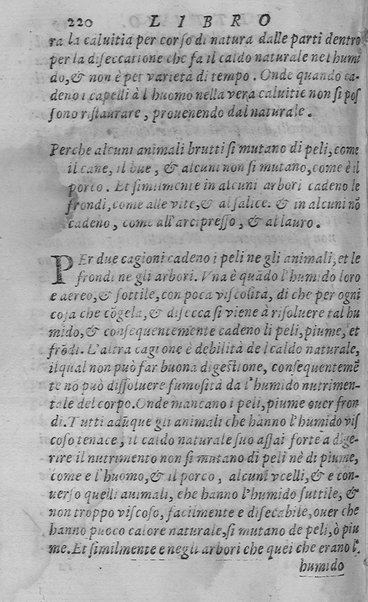 220 LIBRO
ra la caluitia per corso di natura dalle parti dentro
per la diseccatione che fa il caldo naturale nel humi
do, & non è per varietà di tempo. Onde quando ca-
deno i capelli à l'huomo nella vera caluitie non si pos
sono ristaurare, prouenendo dal naturale.
Perche alcuni animali brutti si mutano di peli, come
il cane, il bue, & alcuni non si mutano, come è il
porco. Et similmente in alcuni arbori cadeno le
frondi, come alle vite, & al salice. & in alcuni nõ
cadeno, come all'arcipresso, & al lauro.
PEr due cagioni cadeno i peli ne gli animali, et le
frondi ne gli arbori. Vna è quãdo l'humido loro
e aereo, & sottile, con poca viscosità, di che per ogni
cosa che cõgela, & disecca si viene à risoluere tal hu
mido, & consequentemente cadeno li peli, piume, et
frõdi. L'altra cagione è debilità del caldo naturale,
il qual non può far buona digestione, consequenteme͂
te nõ può dissoluere fumosità da l'humido nutrimen-
tale del corpo. Onde mancano i peli, piume ouer fron
di. Tutti adũque gli animali che hanno l'humido vis
coso tenace, il caldo naturale suo assai forte a dige-
rire il nutrimento non si mutano di peli nè di piume,
come e l'huomo, & il porco, alcuni vcelli, & e con-
uerso quelli animali, che hanno l'humido suttile, &
non troppo viscoso, facilmente e disecabile, ouer che
hanno puoco calore naturale, si mutano de peli, ò piu
me. Et similmente e negli arbori che quei che erano l'
humido